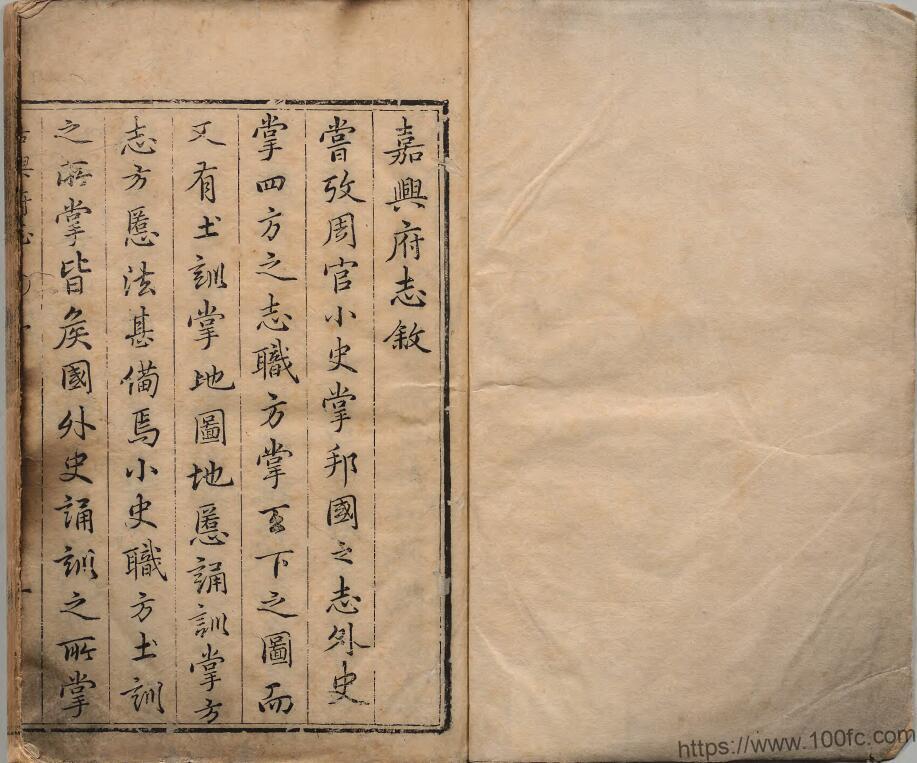 嘉興府志敘
嘗攷周官小史掌邦國之志外史
掌四方之志職方掌天下之圖而
又有土訓掌地圖地慝誦訓掌方
志方慝法甚備焉小史職方土訓
之所掌皆矦國外史誦訓之所掌
https://www.100fc.com